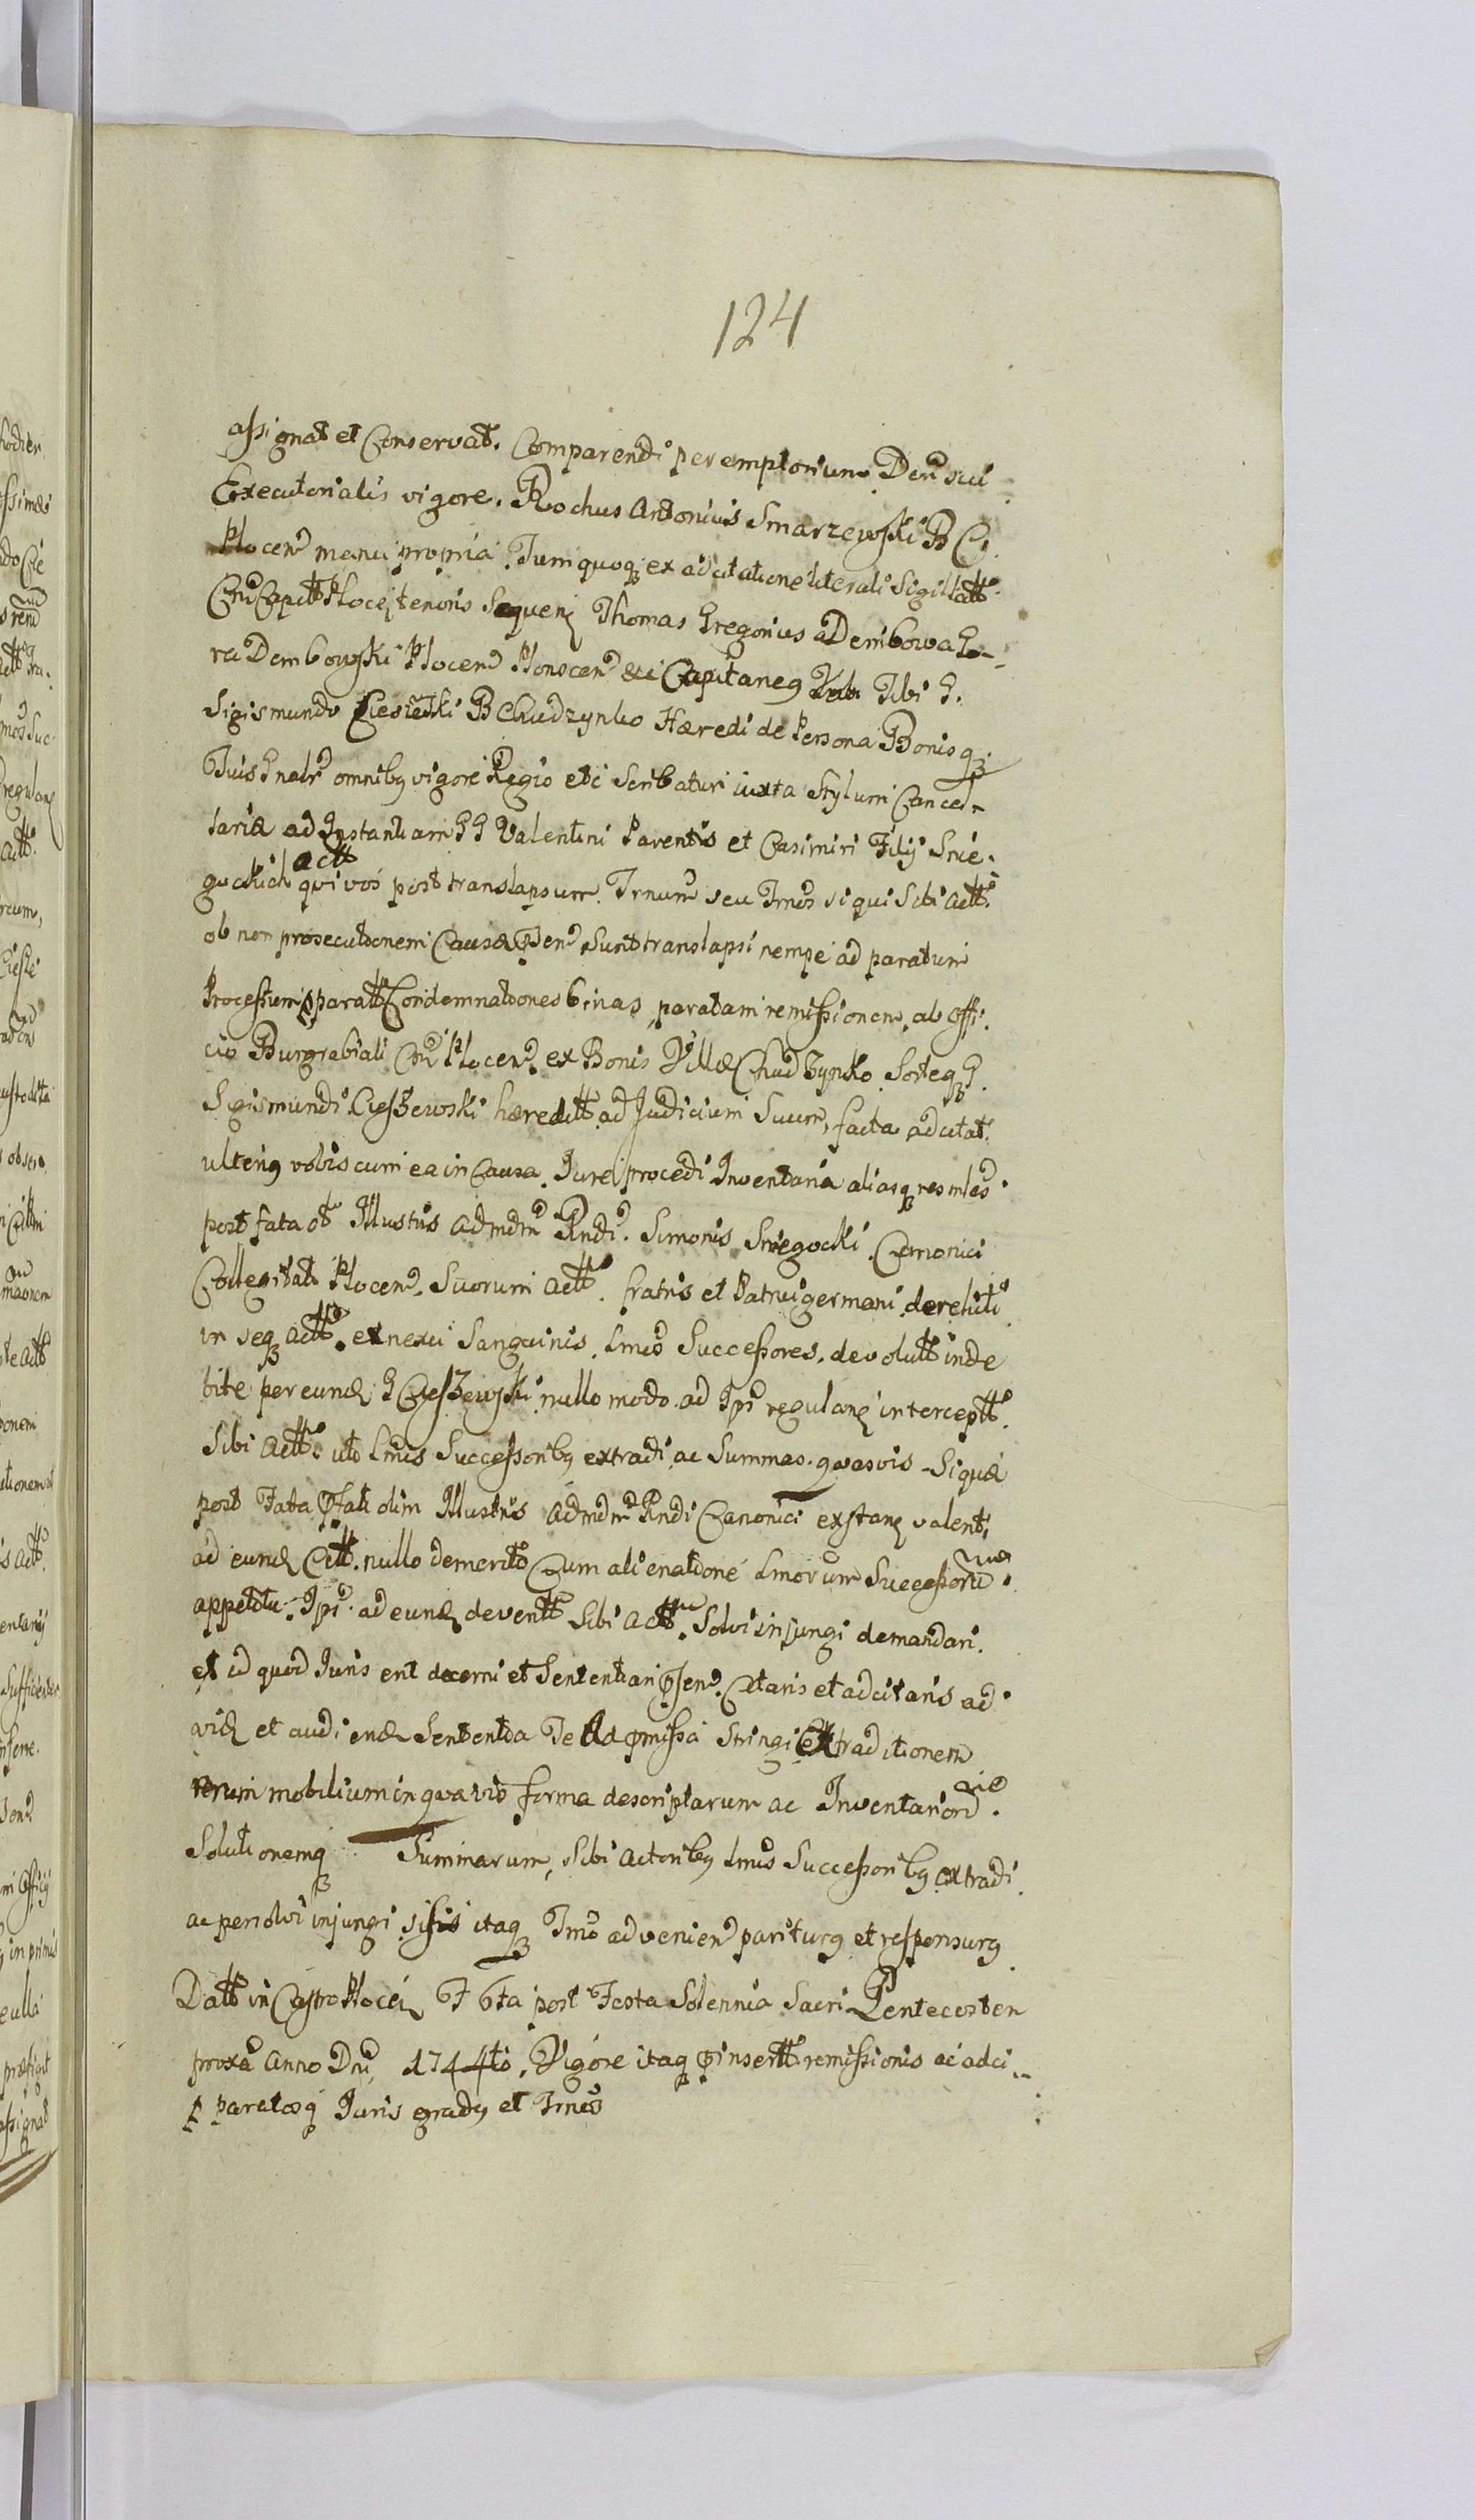 124
assignat et Conservat. Comparendi peremptorium Decr sui
Executorialis vigore. Rochus Antonius Smarzewski B C.
Plocen manu propria. Tum quoq ex adcitatione literali Sigillatt
Cri Capitt Plocen tenoris Sequen Thomas Gregorius a Dembowa Go-
ra Dembowski Plocen Plonscen etc Capitaneg Tibi G.
Sigismundo B Chudzynko Hæredi de Persona Bonisq
Tuis Gnalr omnibg vigore Regio etc Scribatur iuxta Stylum Cancel-
lariæ ad Instantiam GG Valentini Parentis et Casimiri Filij Snie-
gockich Actt qui vos post translapsum Trnum seu Trnos si qui Sibi Actt.
ob non prosecutionem Causæ Psen Sunt translapsi nempe ad paratum
Processum paratt Condemnationes binas paratam remissionem, ab Offi-
cio Burgrabiali Cri Plocen ex Bonis Villæ Chudzynko Sorteq G.
Sigismundi Cieszewski hæreditt ad Judicium Suum, facta adcitat.
ulterig vobiscum ea in Causa Jure procedi Inventaria aliasq res mles
post fata ol Illustris admdm Rndi. Simonis Sniegocki Canonici
Collegitat Plocen. Suorum Actt. fratris et Patrui germani derelicti
in seq Actt. ex nexu Sanguinis. Lmos Successores. devolutt inde
bite per eund G Cieszewski nullo modo ad Ips regulan interceptt.
Sibi Actt. uti Lmis Successoribg extradi ac Summas quasvis Siquæ
post Fata Pfati olim Illustris admdm Rndi Canonici exstan valent.
ad eund Citt. nullo demerito Cum alienatione Lmorum Successorum
appetitu Ips. ad eund deventt Sibi Actt. Solvi injungi demandari.
et id quod Juris erit decerni et Sententiari Psen. Citaris et adcitaris ad
vid et audiend Sententia Te Ad pmissa Stringi Extraditionem
rerum mobilium in quavis forma descriptarum ac Inventarior.
Solutionemq Summarum, Sibi Actoribg Lmis Successoribg extradi
ac persolvi injungi sisis itaq Tmo advenien pariturg et responsurg
Datt in Castro Plocen F 6ta post Festa Solennia Sacri Pentecosten
proxa Anno Dni 1744to. Vigore itaq pinsertt remissionis ac adci-
p paratosq Juris gradg et Trnos